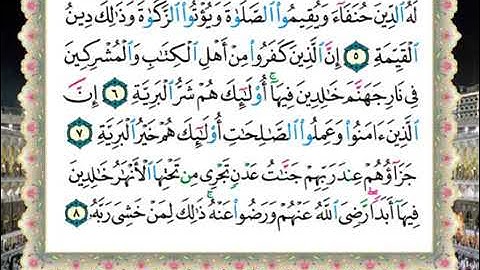 لَهُ ٱلدِّينَ حُنَفَآءَ وَيُقِيمُوا۟ ٱلصَّلَوٰةَ وَيُؤْتُوا۟ ٱلزَّكَوٰةَ وَذَٰلِكَ دِينُ
ٱلْقَيِّمَةِ ٥ إِنَّ ٱلَّذِينَ كَفَرُوا۟ مِنْ أَهْلِ ٱلْكِتَٰبِ وَٱلْمُشْرِكِينَ
فِى نَارِ جَهَنَّمَ خَٰلِدِينَ فِيهَآ أُو۟لَٰٓئِكَ هُمْ شَرُّ ٱلْبَرِيَّةِ ٦ إِنَّ
ٱلَّذِينَ ءَامَنُوا۟ وَعَمِلُوا۟ ٱلصَّٰلِحَٰتِ أُو۟لَٰٓئِكَ هُمْ خَيْرُ ٱلْبَرِيَّةِ ٧
جَزَآؤُهُمْ عِندَ رَبِّهِمْ جَنَّٰتُ عَدْنٍ تَجْرِى مِن تَحْتِهَا ٱلْأَنْهَٰرُ خَٰلِدِينَ
فِيهَآ أَبَدًا ۖ رَّضِىَ ٱللَّهُ عَنْهُمْ وَرَضُوا۟ عَنْهُ ۚ ذَٰلِكَ لِمَنْ خَشِىَ رَبَّهُۥ ٨